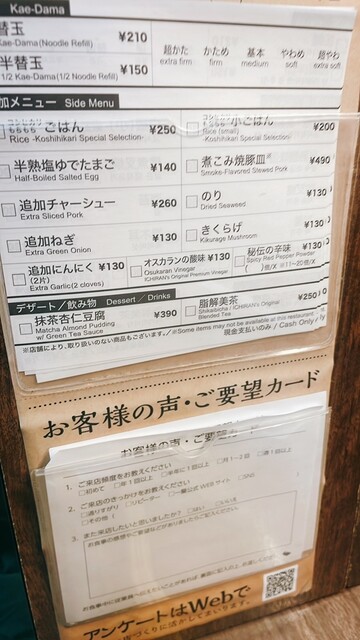 Kae-Dama
替玉
Kae-Dama(Noodle Refill) ¥210
半替玉
1/2 Kae-Dama(1/2 Noodle Refill) ¥150
超かた かため 基本 やわめ 超やわ
extra firm firm medium soft extra soft
加メニュー Side Menu
ごはん ¥250
Rice -Koshihikari Special Selection-
小ごはん ¥200
Rice (small)
-Koshihikari Special Selection-
半熟塩ゆでたまご ¥140
Half-Boiled Salted Egg
煮こみ焼豚皿 ¥490
Smoke-Flavored Stewed Pork
追加チャーシュー ¥260
Extra Sliced Pork
のり ¥130
Dried Seaweed
追加ねぎ ¥130
Extra Green Onion
きくらげ ¥130
Kikurage Mushroom
追加にんにく ¥130
(2片)
Extra Garlic(2 cloves)
オスカランの酸味 ¥130
Osukaran Vinegar
ICHIRAN's Original Premium Vinegar
秘伝の辛味 ¥130
Spicy Red Pepper Powder
( )倍/x ※11~20倍/x
デザート/飲み物 Dessert / Drinks
抹茶杏仁豆腐 ¥390
Matcha Almond Pudding
w/ Green Tea Sauce
脂解美茶 ¥250
Shikaibicha / ICHIRAN's Original
Blended Tea
※店舗により、取り扱いのない商品もございます。/※Some items may not be available at this restaurant.
現金支払いのみ / Cash Only
お客様の声・ご要望カード
お客様の声・ご要望カード
1. ご来店頻度をお教えください
□初めて □年1回以上 □半年に1回以上 □月1~2回 □週1回以上
2. ご来店のきっかけをお教えください
□通りすがり □リピーター □一蘭公式WEBサイト □SNS
□その他(
3. また来店したいと思いましたか? □はい □いいえ
アンケートはWebで